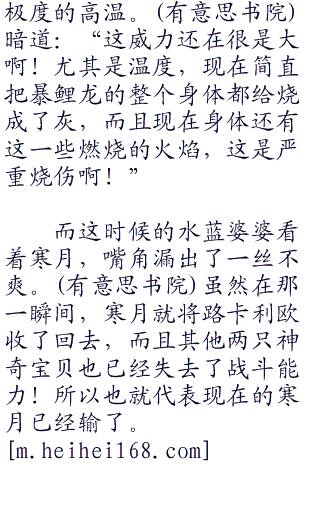 极度的高温。(有意思书院)
暗道：“这威力还在很是大
啊！尤其是温度，现在简直
把暴鲤龙的整个身体都给烧
成了灰，而且现在身体还有
这一些燃烧的火焰，这是严
重烧伤啊！”
而这时候的水蓝婆婆看
着寒月，嘴角漏出了一丝不
爽。(有意思书院)虽然在那
一瞬间，寒月就将路卡利欧
收了回去，而且其他两只神
奇宝贝也已经失去了战斗能
力！所以也就代表现在的寒
月已经输了。
[m.heihei168.com]